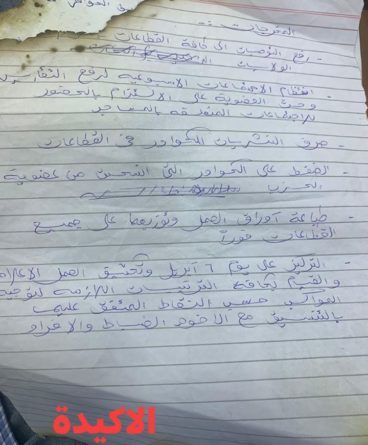 في الخواص
المخرجات :-
- رفع التوصيات الى كافة القطاعات
الولايات
- انتظام الاجتماعات الاسبوعيه لرفع التقارير
وحث العضوية على الالتزام بالحضور
للاجتماعات المنعقدة بالمساجد
- صرف النثريات للكوادر في القطاعات
- الضغط على الكوادر التي انسحبت من عضوية
الحزب
- طباعة أوراق العمل وتوزيعها على جميع
القطاعات فورا
- التركيز على يوم ٦ أبريل وتكثيف العمل الاعلامي
والقيام بكافة الترتيبات اللازمه لتوجيه
المواكب حسب النقاط المتفق عليها
بالتنسيق مع الاخوة الضباط والافراد
الاكيدة